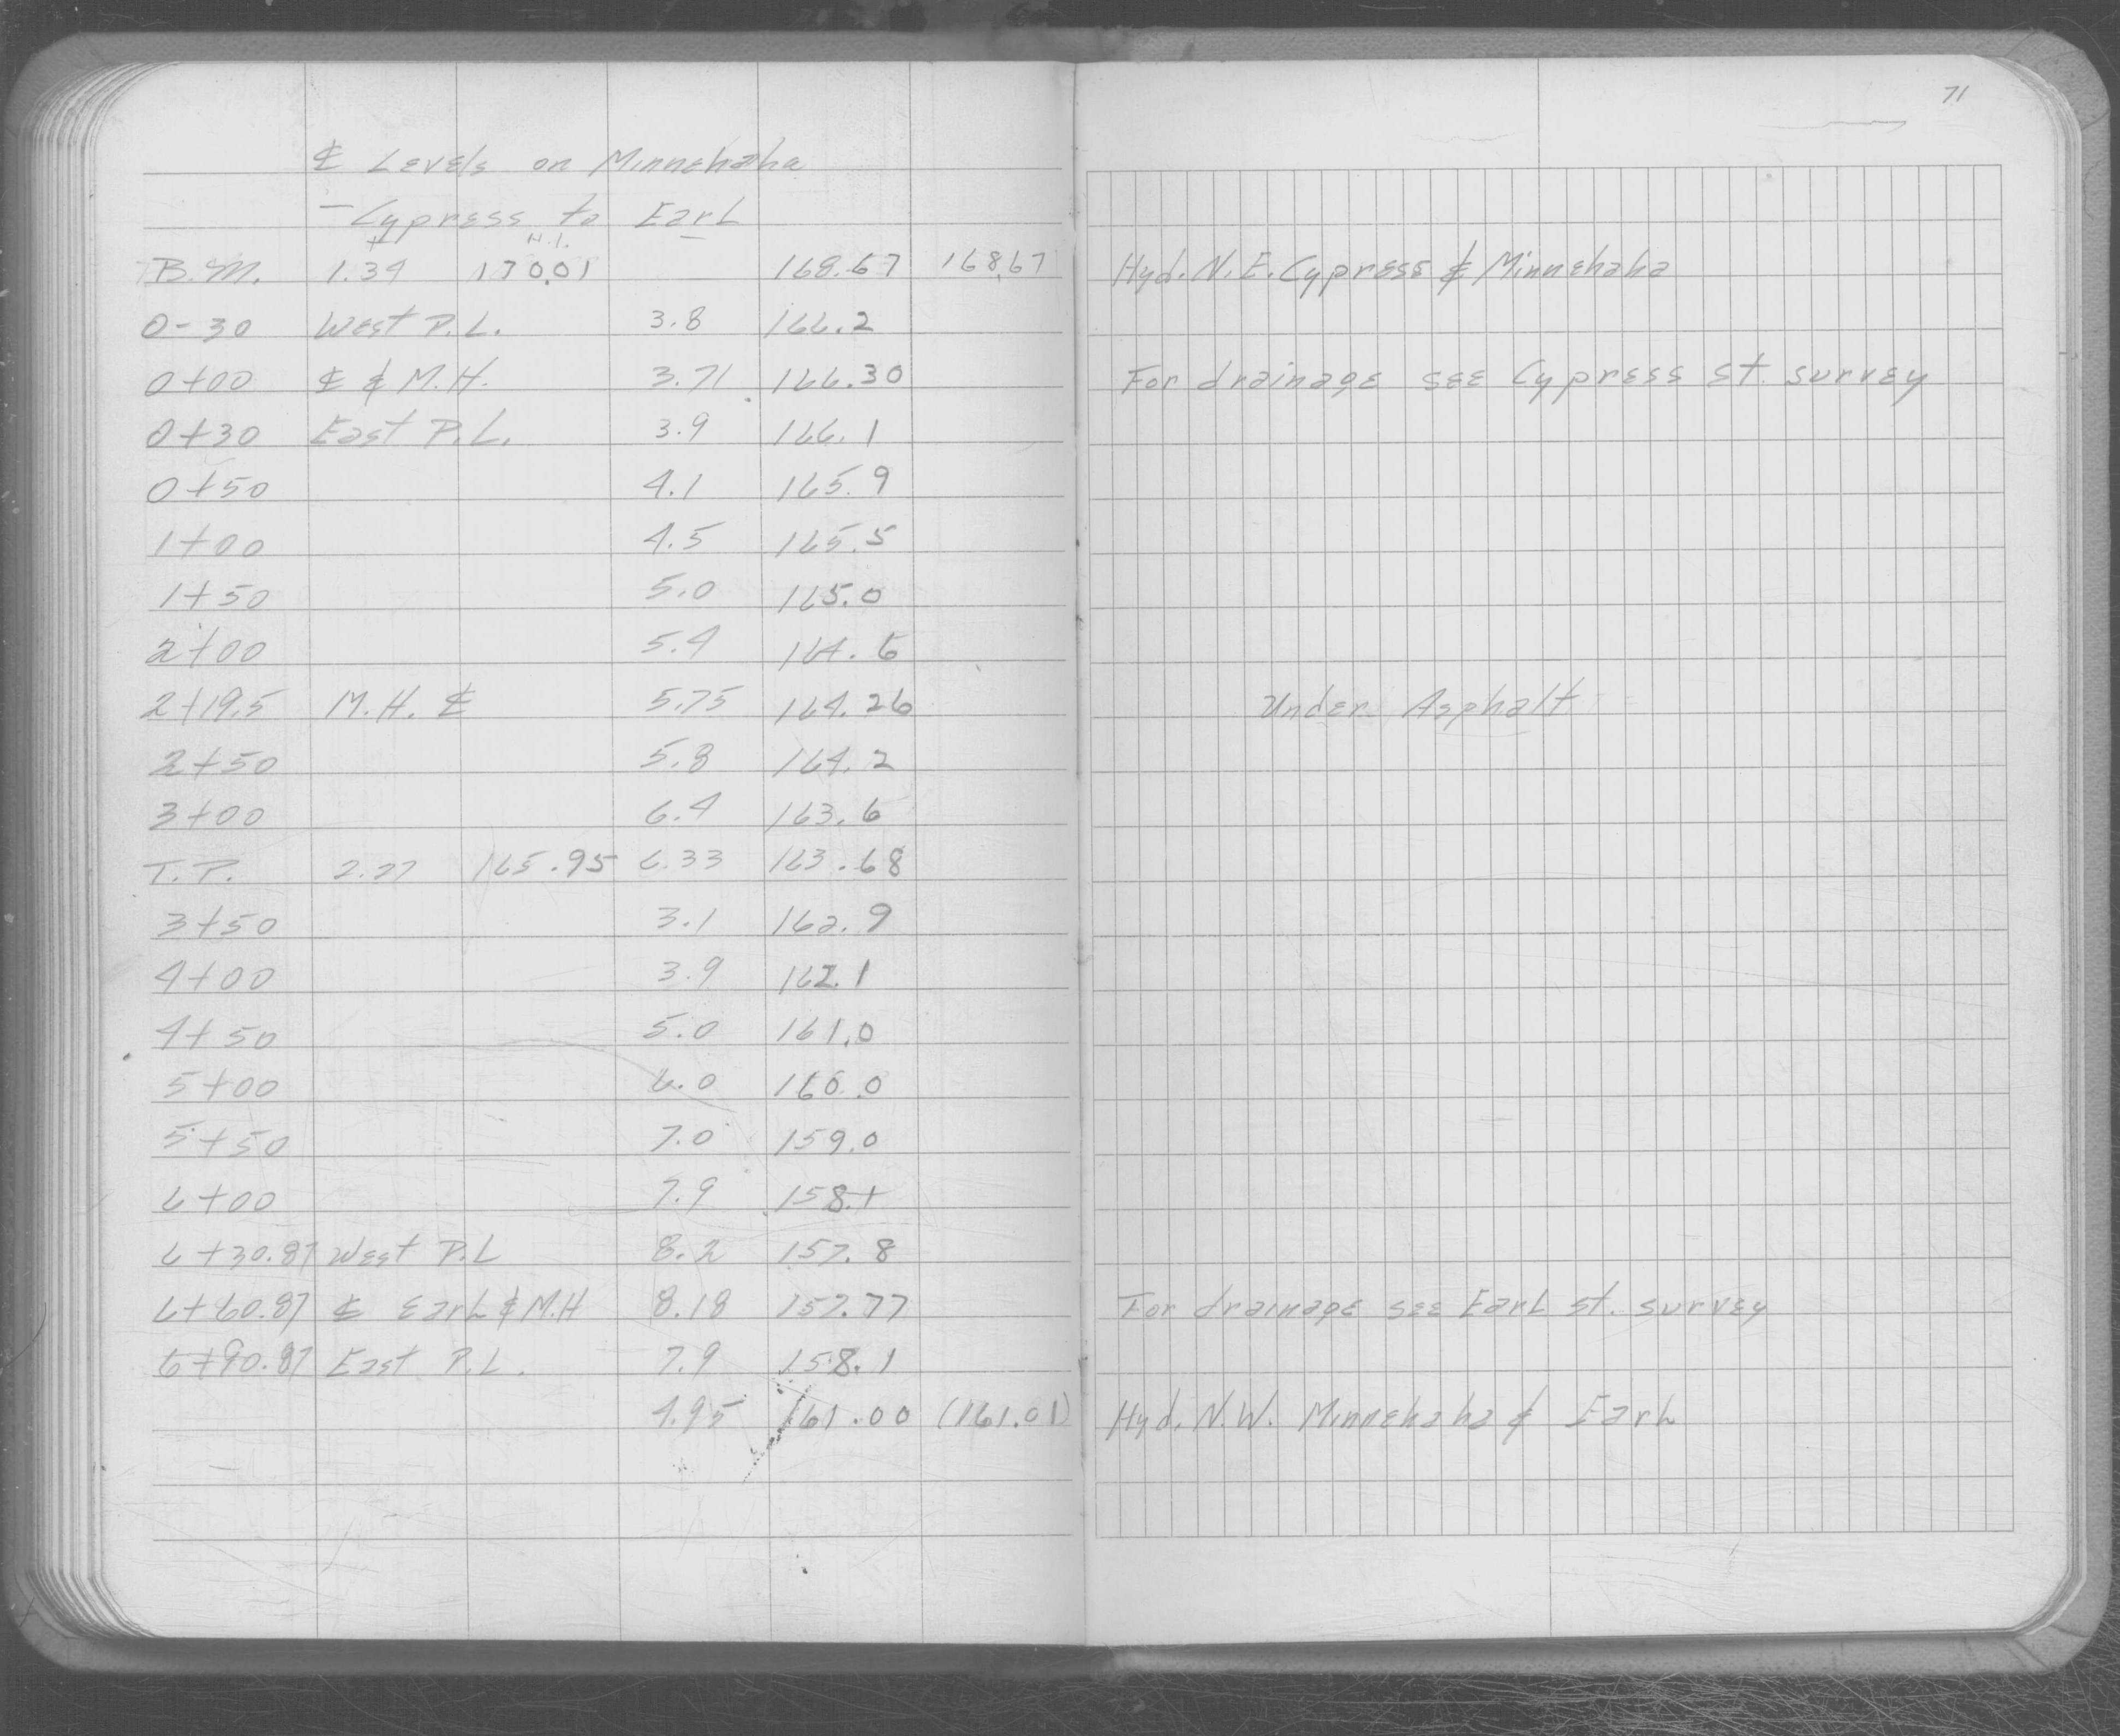 71
℄ Levels on Minnehaha
- Cypress to Earl
+ H.I.
B.M. 1.34 170.01 168.67 168.67 Hyd. N.E. Cypress & Minnehaha
0-30 West P.L. 3.8 166.2
0+00 ℄ & M.H. 3.71 166.30 For drainage see Cypress St. survey
0+30 East P.L. 3.9 166.1
0+50 4.1 165.9
1+00 4.5 165.5
1+50 5.0 165.0
2+00 5.4 164.6
2+19.5 M.H. ℄ 5.75 164.26 Under Asphalt
2+50 5.8 164.2
3+00 6.4 163.6
T.P. 2.27 165.95 6.33 163.68
3+50 3.1 162.9
4+00 3.9 162.1
4+50 5.0 161.0
5+00 6.0 160.0
5+50 7.0 159.0
6+00 7.9 158.1
6+30.87 West P.L 8.2 157.8
6+60.87 ℄ Earl & M.H 8.18 157.77 For drainage see Earl St. survey
6+90.87 East P.L. 7.9 158.1
4.95 161.00 (161.01) Hyd. N.W. Minnehaha & Earl